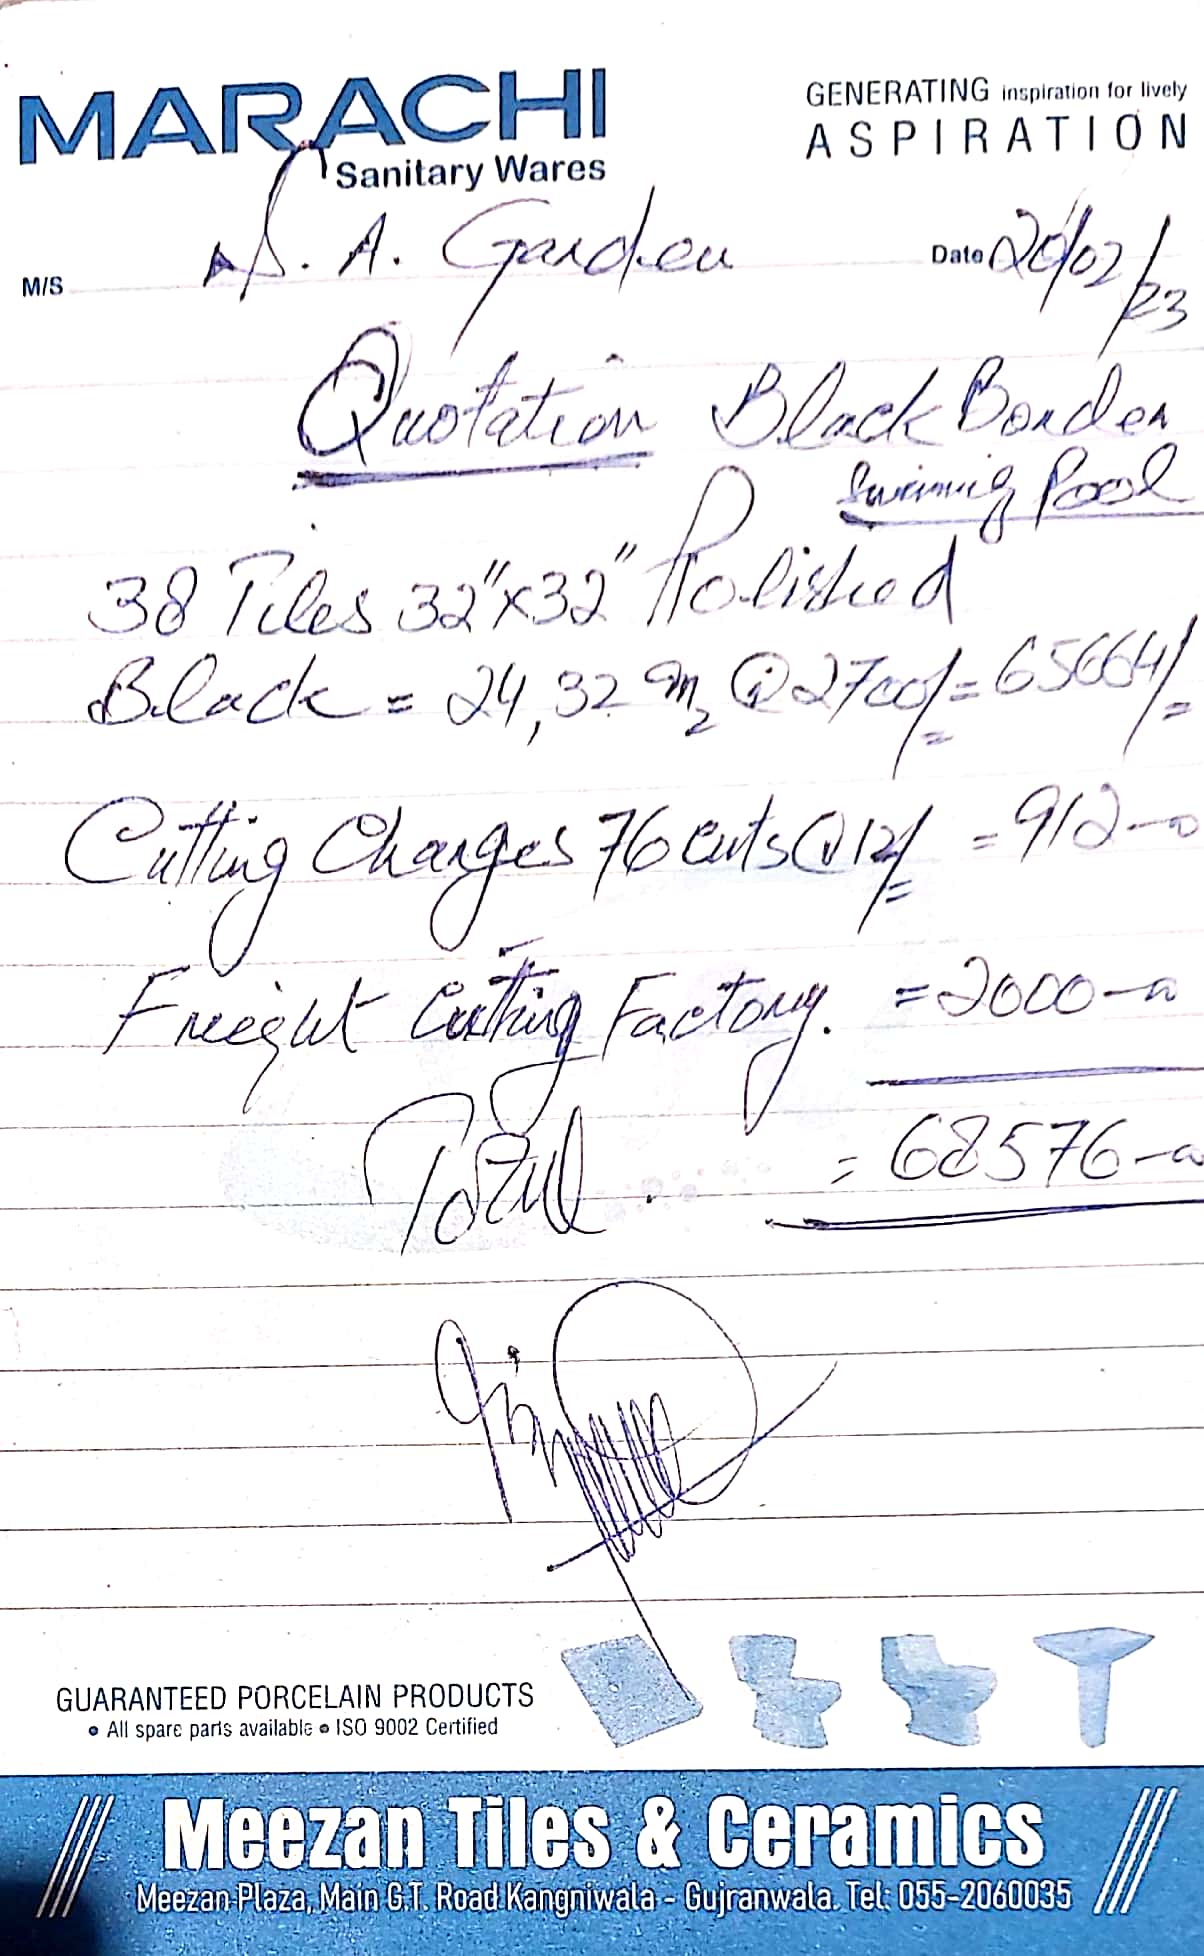 MARACHI
Sanitary Wares
GENERATING inspiration for lively
ASPIRATION
M/S S. A. Garden
Date 20/02/23
Quotation Black Border
Swiming Pool
38 Tiles 32"x32" Polished
Black = 24,32 m2 @ 2700/= = 65664/=
Cutting Charges 76 cuts @ 12/= = 912-00
Freight Cutting Factory. = 2000-00
Total. = 68576-00
GUARANTEED PORCELAIN PRODUCTS
• All spare parts available • ISO 9002 Certified
Meezan Tiles & Ceramics
Meezan Plaza, Main G.T. Road Kangniwala - Gujranwala. Tel: 055-2060035